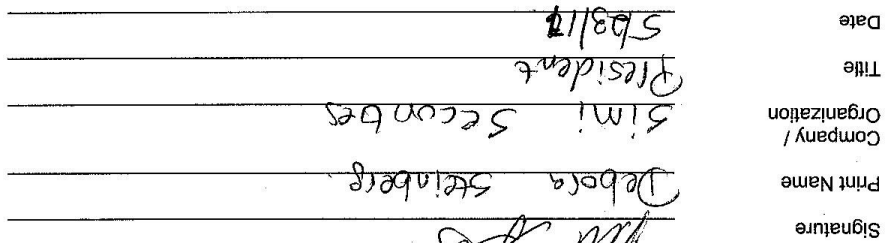 Signature
Print Name Debora Steinberg
Company / Organization Simi Securities
Title President
Date